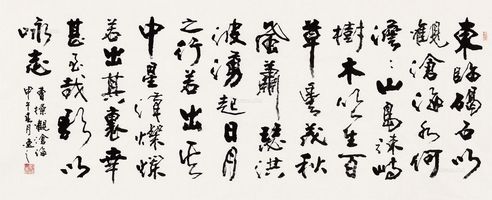 東臨碣石以
觀滄海水何
澹澹山島竦峙
樹木丛生百
草豐茂秋
風蕭瑟洪
波湧起日月
之行若出其
中星漢燦爛
若出其裏幸
甚至哉歌以
詠志
曹操觀滄海
甲午月